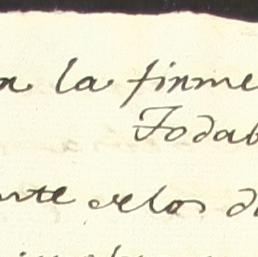 a la firme
Todab
nte delos d